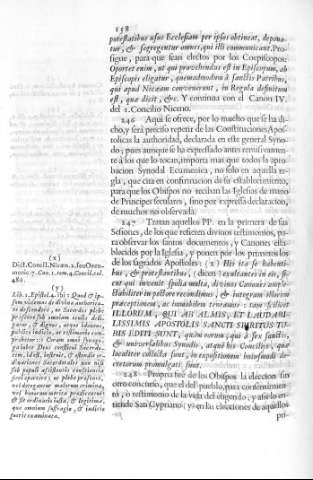 158
potestatibus usus Ecclesiam per ipsos obtineat, depona-
tur, & segregentur omnes, qui illi communicant. Pro-
sigue, para que sean electos por los Coepiscopos:
Oportet enim, ut qui provehendus est in Episcopum, ab
Episcopis eligatur, quemadmodum à sanctis Patribus,
qui apud Nicæam convenerunt, in Regula definitum
est, quæ dicit, &c. Y continúa con el Canon IV.
del 1. Concilio Niceno.
246 Aqui se ofrece, por lo mucho que se ha di-
cho, y será preciso repetir de las Constituciones Apos-
tolicas la autoridad, declarada en este general Syno-
do; pues aunque se ha expressado antes
te à los que lo tocan, importa mas que todos la apro-
bacion Synodal Ecumenica, no solo en aquella re-
gla, que cita en confirmacion de su establecimiento,
para que los Obispos no reciban las Iglesias de mano
de Principes seculares, sino por expressa declaracion,
de muchos no observada.
247 Tratan aquellos PP. en la primera de sus
Sesiones, de los que refieren divinos testimonios, pa-
ra observar los santos documentos, y Canones esta-
blecidos por la Iglesia, y ponen por los primeros los
de los sagrados Apostoles: (x) His ita se habenti-
bus, & protestantibus, (dicen) exultantes in eis, si-
cut qui invenit spolia multa, divinos Canones am-
plectabiliter in pectore recondimus, & integram illorum
præceptionem, ac immobilem tenemus: tam scilicet
ILLORUM, QUI AB ALMIS, ET LAUDABI-
LISSIMIS APOSTOLIS SANCTI SPIRITUS TU-
BIS EDITI SUNT, quàm eorum, qui à sex sanctis,
& universalibus Synodis, atque his Conciliis, quæ
localiter collecta sunt, in expositionem hujusmodi de-
cretorum promulgati sunt.
248 Propria fue de los Obispos la eleccion sin
otro concurso, que el del pueblo, para consentimien-
to, ò testimonio de la vida del elegido, y assi lo en-
tiende San Cypriano; y en las elecciones de aquellos
pri-
(x)
Dict. Concil. Nicæn. 2. seu Oecu-
menic. 7. Can. 1. tom. 4. Concil. col.
486.
(y)
Lib. 1. Epistol. 4. ibi: Quod & ip-
sum videmus de divina authorita-
te descendere, ut Sacerdos plebe
præsente sub omnium oculis deli-
gatur, & dignus, atque idoneus
publico judicio, ac testimonio com-
probetur::: Coram omni synago-
ga jubet Deus constitui Sacerdo-
tem, idest, instruit, & ostendit or-
dinationes Sacerdotales non nisi
sub populi assistentis conscientia
fieri oportere; ut plebe præsente,
vel detegantur malorum crimina,
vel bonorum merita prædicentur,
& sit ordinatio justa, & legitima,
quæ omnium suffragio, & judicio
fuerit examinata.